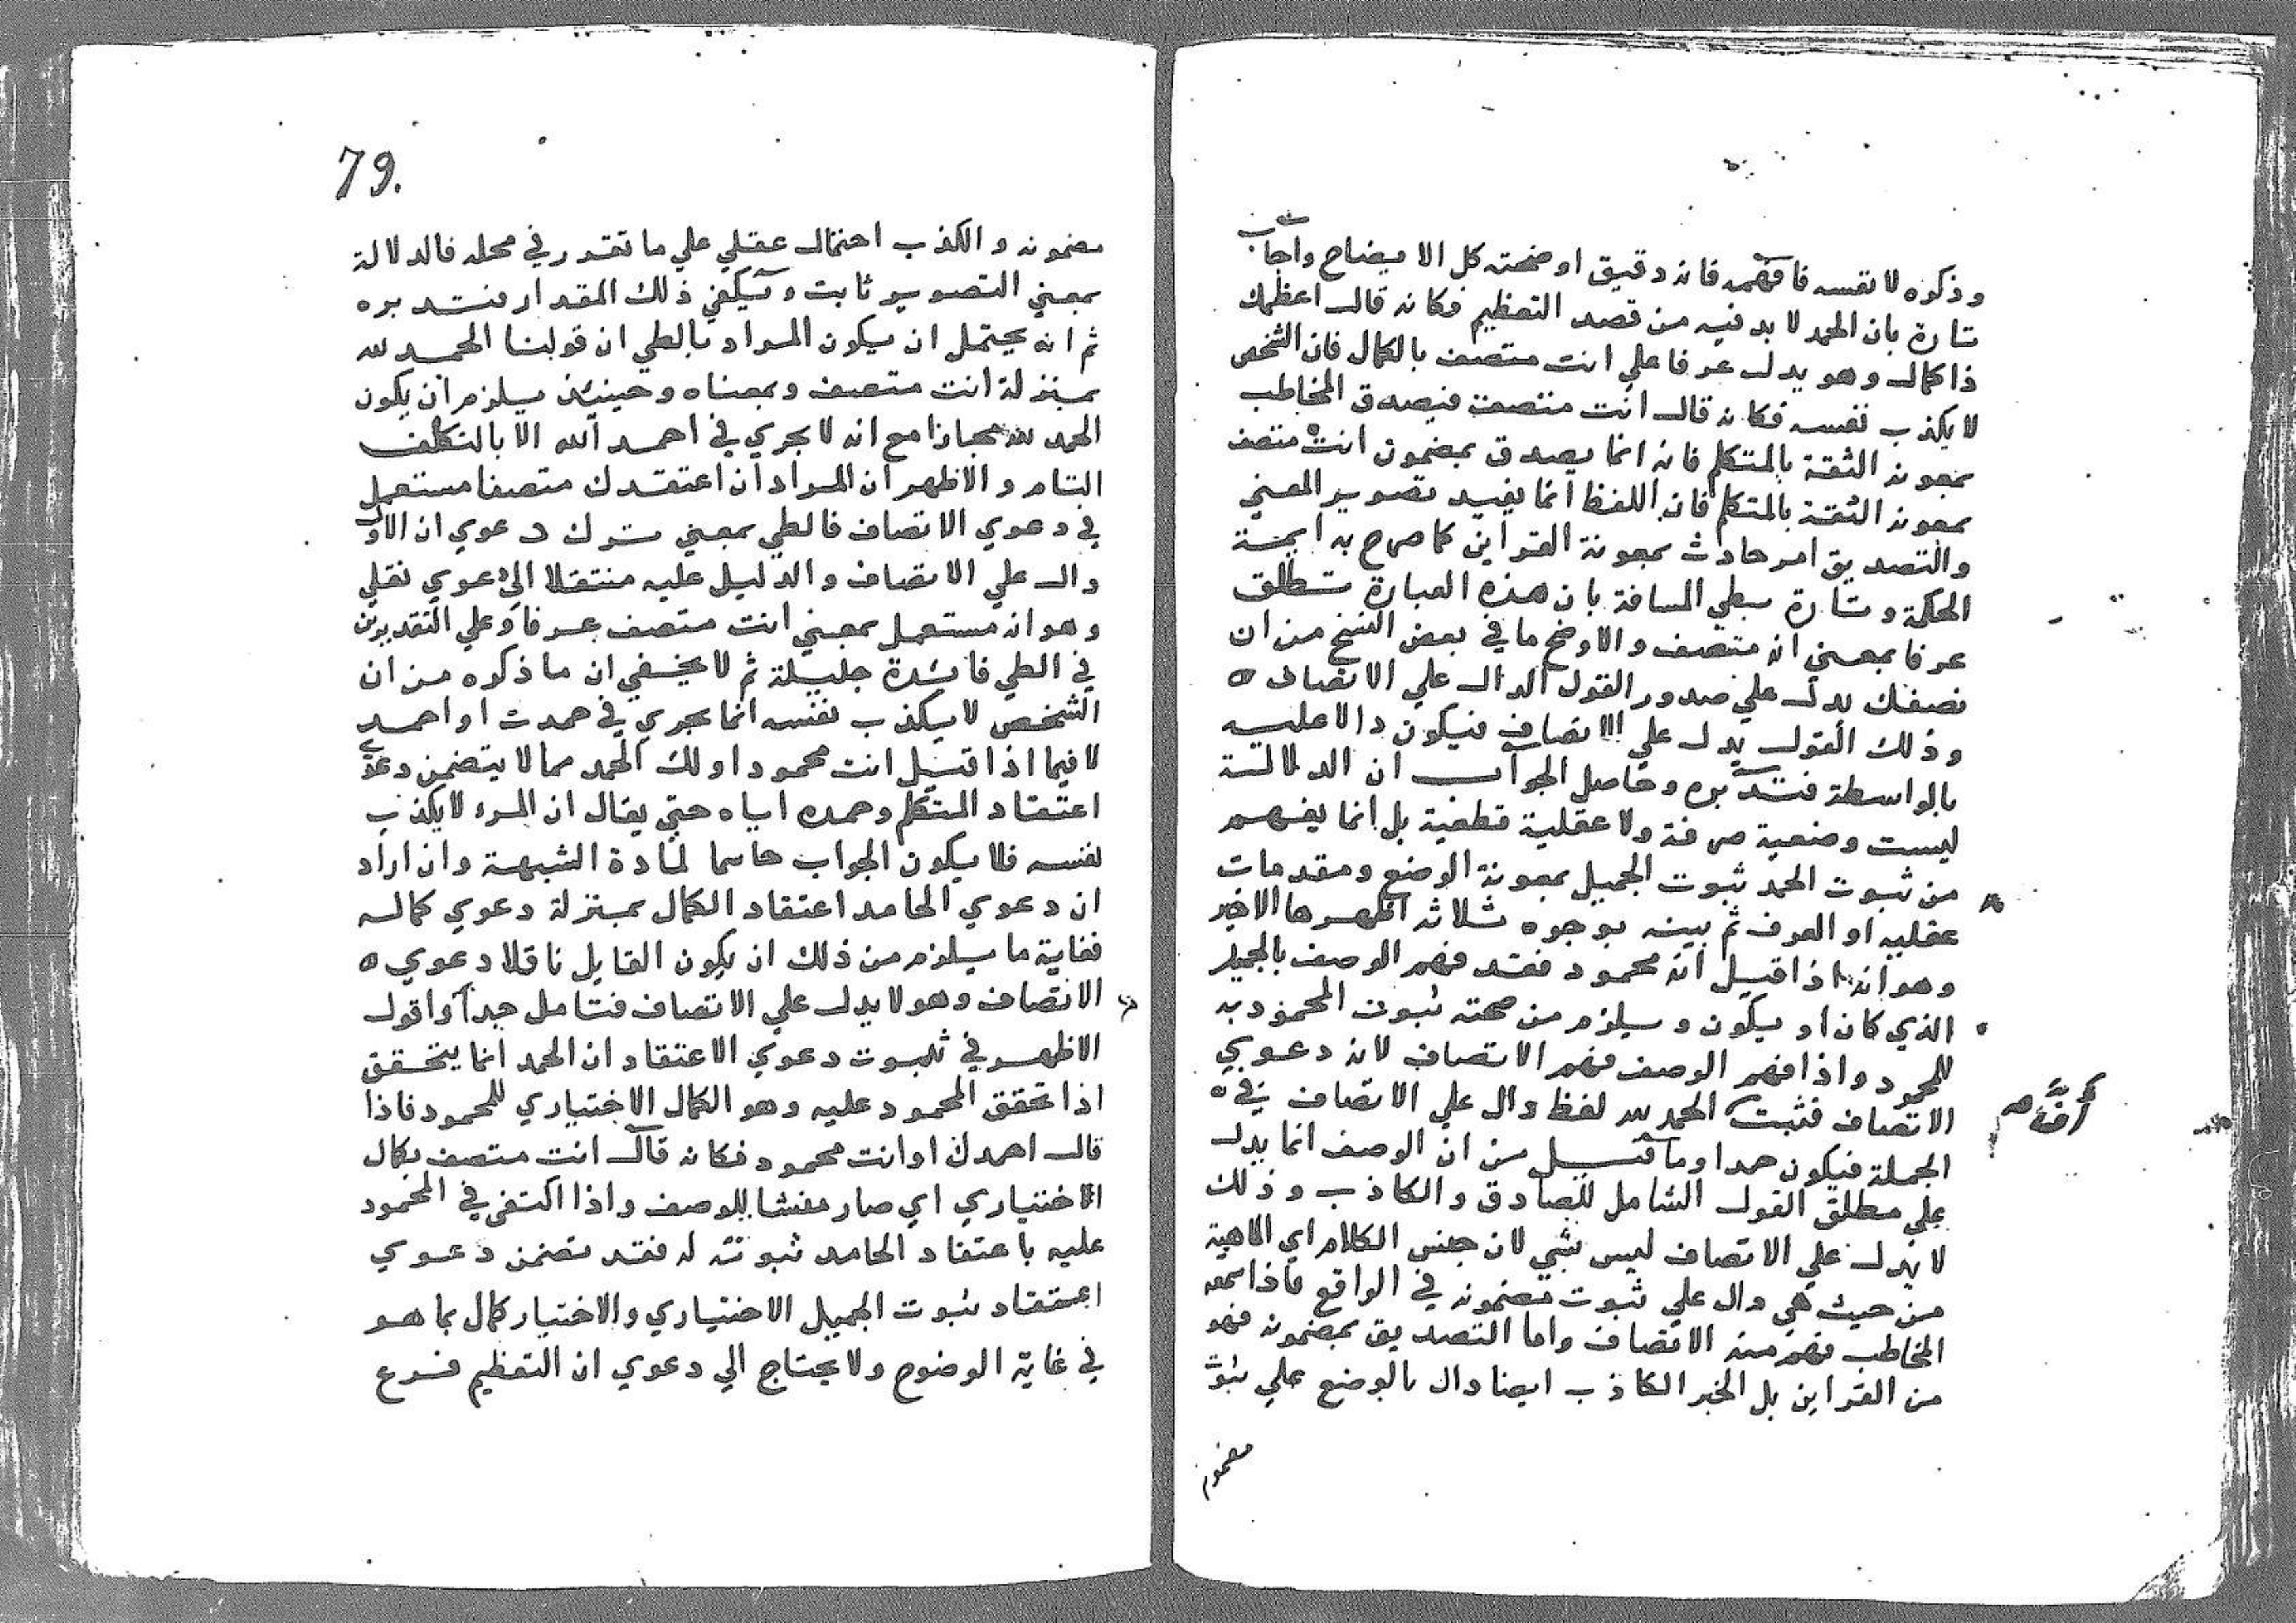 وذكره لا نفسه فافهمه فانه دقيق اوضحته كل الايضاح واجاب
تارة بان الحمد لا بد فيه من قصد التعظيم فكانه قال اعظمك
ذا كمال وهو يدل عرفا علي انت متصف بالكمال فان الشخص
لا يكذب نفسه فكانه قال انت متصف فيصدق المخاطب
بمعونة الثقة بالمتكلم فانه انما يصدق بمضمون انت متصف
بمعونة الثقة بالمتكلم فان اللفظ انما يفيد تصوير المعني
والتصديق امر حادث بمعونة القراين كما صرح به ايمة
الحكمة وتارة بطي المسافة بان هذه العبارة تطلق
عرفا بمعني انه متصف والاوضح ما في بعض النسخ من ان
نصفك يدل علي صدور القول الدال علي الاتصاف ه
وذلك القول يدل علي الاتصاف فيكون دالا عليه
بالواسطة فتدبره وحاصل الجواب ان الدلالة
ليست وضعية صرفة ولا عقلية قطعية بل انما يفهم
من ثبوت الحمد ثبوت الجميل بمعونة الوضع ومقدمات
عقليه او العرف ثم بينه بوجوه ثلاثه اظهرها الاخير
وهو انه اذا قيل انه محمود فقد فهم الوصف بالجميل
الذي كان او يكون ويلزم من صحته ثبوت المحمود به
للمحمود واذا فهم الوصف فهم الاتصاف لانه دعوي
الاتصاف فثبت الحمد لله لفظ دال علي الاتصاف في ه
الجملة فيكون حمدا وما قيل من ان الوصف انما يدل
علي مطلق القول الشامل للصادق والكاذب وذلك
لا يدل علي الاتصاف ليس بشي لان جنس الكلام اي الماهية
من حيث هي دال علي ثبوت مضمونه في الواقع فاذا سمعه
المخاطب فهم منه الاتصاف واما التصديق بمضمونه فهو
من القراين بل الخبر الكاذب ايضا دال بالوضع علي ثبوت
79.
مضمونه والكذب احتمال عقلي علي ما تقرر في محله فالدلالة
بمعني التصوير ثابت ويكفي ذلك المقدار فتدبره
ثم انه يحتمل ان يكون المراد بالطي ان قولنا الحمد لله
بمنزلة انت متصف وبمعناه وحينئذ يلزم ان يكون
الحمد لله مجازا مع انه لا يجري في احمد الله الا بالتكلف
التام والاظهر ان المراد ان اعتقدك متصفا مستعمل
في دعوي الاتصاف فالطي بمعني ترك دعوي ان الاول
دال علي الاتصاف والدليل عليه منتقلا الي دعوي نقلي
وهو انه مستعمل بمعني انت متصف عرفا وعلي التقديرين
في الطي فائدة جليلة ثم لا يخفي ان ما ذكره من ان
الشخص لا يكذب نفسه انما يجري في حمدت او احمد
لا فيما اذا قيل انت محمود او لك الحمد مما لا يتضمن دعوي
اعتقاد المتكلم وحمده اياه حتي يقال ان المرء لا يكذب
نفسه فلا يكون الجواب حاسما لمادة الشبهة وان اراد
ان دعوي الحامد اعتقاد الكمال بمنزلة دعوي كماله
فغاية ما يلزم من ذلك ان يكون القايل ناقلا دعوي ه
الاتصاف وهو لا يدل علي الاتصاف فتامل جيدا واقول
الاظهر في ثبوت دعوي الاعتقاد ان الحمد انما يتحقق
اذا تحقق المحمود عليه وهو الكمال الاختياري للمحمود فاذا
قال احمدك او انت محمود فكانه قال انت متصف بكمال
الاختياري اي صار منشا للوصف واذا اكتفي في المحمود
عليه باعتقاد الحامد ثبوته له فقد تضمن دعوي
اعتقاد ثبوت الجميل الاختياري والاختيار كمال بما هو
في غاية الوضوح ولا يحتاج الي دعوي ان التعظيم فرع